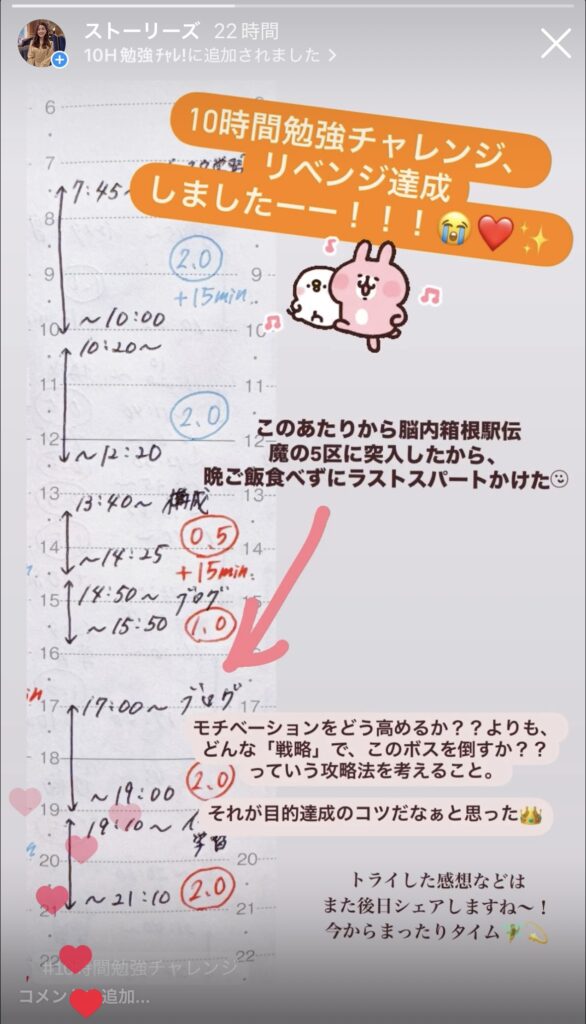 ストーリーズ 22時間
10H 勉強ﾁｬﾚ!に追加されました
10時間勉強チャレンジ、
リベンジ達成
しましたーー！！！😭❤️✨
6
7
7:45~
8
2.0
9
9
+15min.
~10:00
10
10
10:20~
11
11
2.0
12
12
~12:20
このあたりから脳内箱根駅伝
魔の5区に突入したから、
晩ご飯食べずにラストスパートかけた
13
13
13:40~ 構成
0.5
14
14
~14:25
+15min.
14:50~ ブログ
15
15
~15:50
1.0
16
16
17
17
17:00~ ブログ
モチベーションをどう高めるか？？よりも、
どんな「戦略」で、このボスを倒すか？？
っていう攻略法を考えること。
18
~19:00
2.0
19
それが目的達成のコツだなぁと思った👑
19:10~
学習
20
20
2.0
~21:10
21
21
トライした感想などは
また後日シェアしますね〜！
今からまったりタイム🧚💫
22
22
#10時間勉強チャレンジ
コメントを追加...